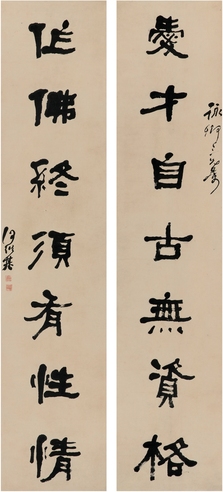 愛才自古無資格
作佛終須有性情
何紹基